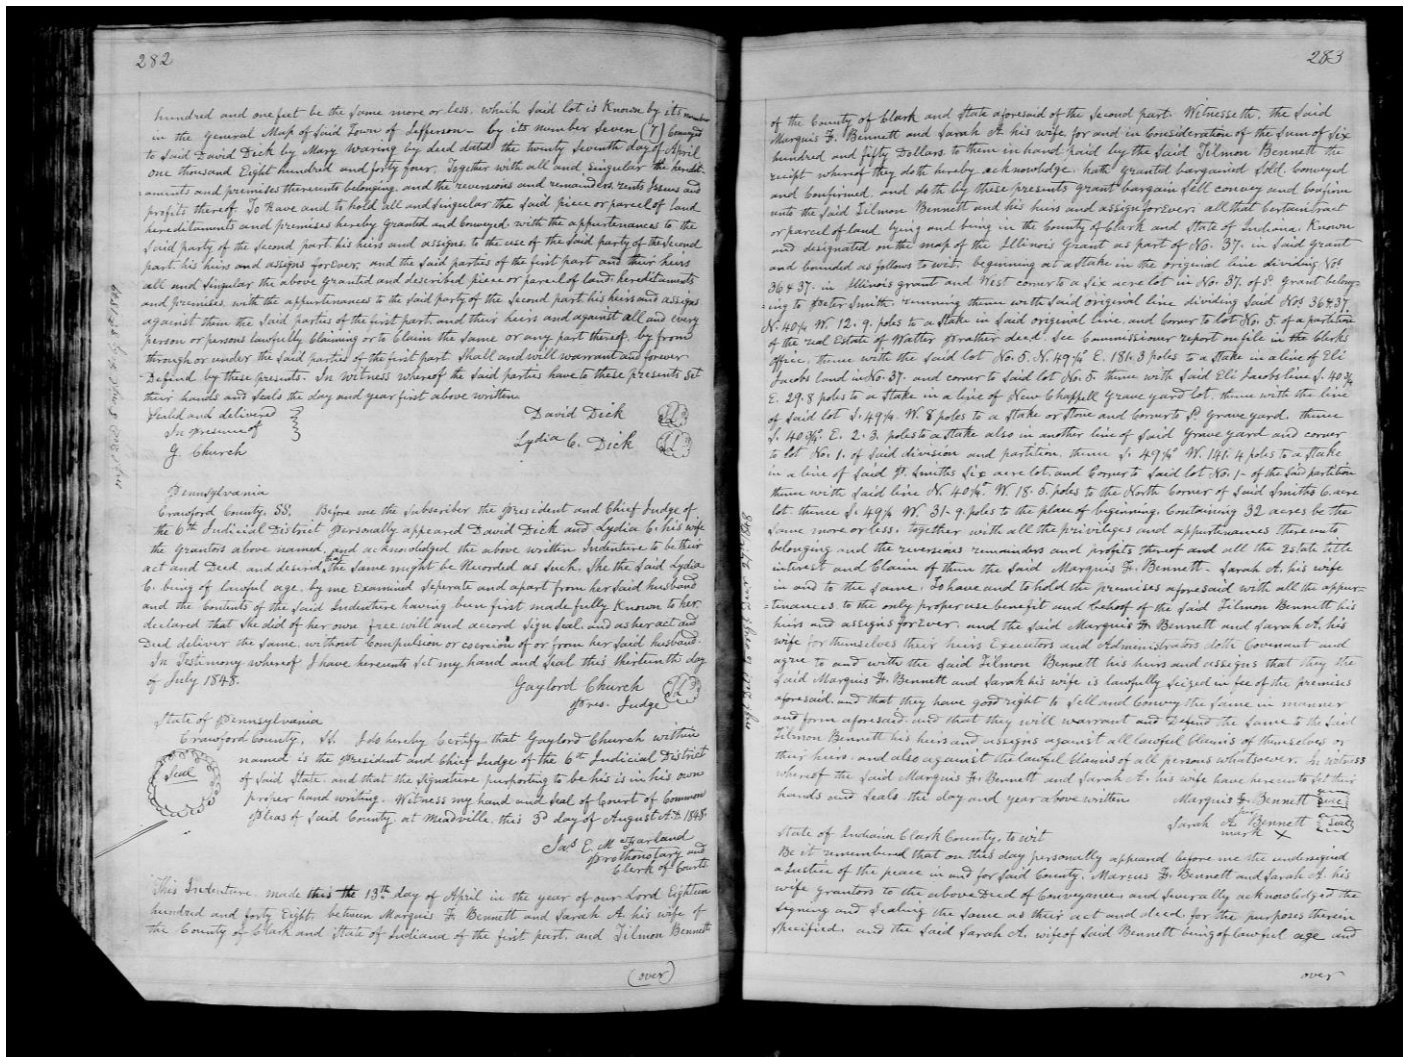 282
hundred and one feet be the same more or less. which said lot is known by its number
in the General Map of Said Town of Jefferson - by its number Seven (7) Conveyed
to Said David Dick by Mary Waring by deed dated the twenty Seventh day of April
one thousand Eight hundred and forty four. Together with all and Singular the heredit-
aments and premises thereunto belonging. and the reversions and remainders, rents Issues and
profits thereof. To have and to hold all and Singular the Said piece or parcel of land
hereditaments and premises hereby granted and Conveyed with the appurtenances to the
Said party of the Second part his heirs and assigns to the use of the Said party of the Second
part. his heirs and assigns for Ever. and the Said parties of the first part and their heirs
all and Singular the above granted and described piece or parcel of land. hereditaments
and premises with the appurtenances to the Said party of the Second part his heirs and assigns
against them the Said parties of the first part. and their heirs and against all and every
person or persons lawfully Claiming or to Claim the Same or any part thereof. by from
through or under the Said parties of the first part Shall and will warrant and forever
Defend by these presents. In witness whereof the Said parties have to these presents Set
their hands and Seals the day and year first above written.
Sealed and delivered
In presence of
G. Church
David Dick
Lydia C. Dick
Pennsylvania
Crawford County. SS. Before me the Subscriber the President and Chief Judge of
the 6th Judicial District Personally appeared David Dick and Lydia C. his wife
the Grantors above named, and acknowledged the above written Indenture to be their
act and Deed and desired that the Same might be Recorded as Such. She the Said Lydia
C. being of lawful age. by me Examined Seperate and apart from her said husband
and the Contents of the Said Indenture having been first made fully known to her.
declared that She did of her own free will and accord Sign Seal. and as her act and
Deed deliver the Same. without Compulsion or coersion of or from her Said husband.
In Testimony whereof I have hereunto Set my hand and Seal this thirteenth day
of July 1848.
Gaylord Church
Pres. Judge
State of Pennsylvania
Crawford County, SS. I do hereby Certify that Gaylord Church within
named is the President and Chief Judge of the 6th Judicial District
Seal
of Said State, and that the Signature purporting to be his is in his own
proper hand writing. Witness my hand and Seal of Court of Common
Pleas of Said County at Meadville. this 3d day of August A.D. 1848
Jas E. McFarland
Prothonotary and
Clerk of Courts
This Indenture made this the 13th day of April in the year of our Lord Eighteen
hundred and forty Eight. between Marquis F. Bennett and Sarah A. his wife of
the County of Clark and State of Indiana of the first part. and Tilmon Bennett
(over)
283
of the County of Clark and State aforesaid of the Second part. Witnesseth, the Said
Marquis F. Bennett and Sarah A. his wife for and in Consideration of the Sum of Six
hundred and fifty Dollars to them in hand paid by the Said Tilmon Bennett the
recipt whereof they doth hereby acknowledge. hath granted bargained Sold. Conveyed
and Confirmed. and doth by these presents grant bargain Sell convey and Confirm
unto the Said Tilmon Bennett and his heirs and assigns forEver; all that Certain tract
or parcel of land lying and being in the County of Clark and State of Indiana. Known
and designated on the map of the Illinois Grant as part of No. 37. in Said Grant
and bounded as follows to wit. beginning at a Stake in the original line dividing Nos
36 & 37. in Illinois grant and West corner to a Six acre lot in No. 37. of Sd. Grant belong-
=ing to Peter Smith. running thence with Said original line dividing Said Nos 36 & 37.
N. 40¼ W. 12. 9. poles to a Stake in Said original line. and Corner to lot No. 5. of a partition
of the real Estate of Walter Prather deed. See Commissioner report on file in the Clerks
office; thence with the Said lot No. 5. N. 49¼° E. 181. 3 poles to a Stake in a line of Eli
Jacobs land in No. 37. and corner to Said lot No. 5. thence with Said Eli Jacobs line S. 40¾
E. 29. 8 poles to a Stake in a line of New Chappell Grave yard lot. thence with the line
of Said lot S. 49¼. W. 8 poles to a Stake or Stone and Corner to Sd. Grave yard, thence
S. 40¾° E. 2. 3. poles to a Stake also in another line of Said Grave yard and corner
to lot No. 1. of Said division and partition, thence S. 49¼° W. 141. 4 poles to a Stake
in a line of Said P. Smiths Six acre lot. and Corner to Said lot No. 1 - of the Said partition
thence with Said line N. 40¼° W. 18. 5. poles to the North Corner of Said Smiths 6. acre
lot. thence S. 49¼ W. 31 - 9. poles to the place of beginning. Containing 32 acres be the
Same more or less. together with all the privileges and appurtenances thereunto
belonging. and the reversions remainders and profits thereof and all the Estate title
interest and Claim of them the Said Marquis F. Bennett - Sarah A. his wife
in and to the Same; To have and to hold the premises aforesaid with all the appur-
=tenances. to the only proper use benefit and behoof of the Said Tilmon Bennett his
heirs and assigns for Ever. and the Said Marquis F. Bennett and Sarah A. his
wife for themselves their heirs Executors and Administrators doth Covenant and
agree to and with the Said Tilmon Bennett his heirs and assigns that they the
Said Marquis F. Bennett and Sarah his wife is lawfully Seized in fee of the premises
aforesaid. and that they have good right to Sell and Convey the Same in manner
and form aforesaid. and that they will warrant and Defend the Same to the Said
Tilmon Bennett his heirs and assigns against all lawful Claims of themselves or
their heirs. and also against the lawful Claims of all persons whatsoever. In witness
whereof the Said Marquis F. Bennett and Sarah A. his wife have hereunto Set their
hands and Seals the day and year above written.
Marquis F. Bennett Seal
Sarah A. her Bennett Seal
mark X
State of Indiana Clark County, to wit
Be it remembered that on this day personally appeared before me the undersigned
a Justice of the peace in and for Said County. Marcus F. Bennett and Sarah A. his
wife grantors to the above Deed of Conveyance. and Severally acknowledged the
Signing and Sealing the Same as their act and deed. for the purposes therein
Specified. and the Said Sarah A. wife of Said Bennett being of lawful age and
over